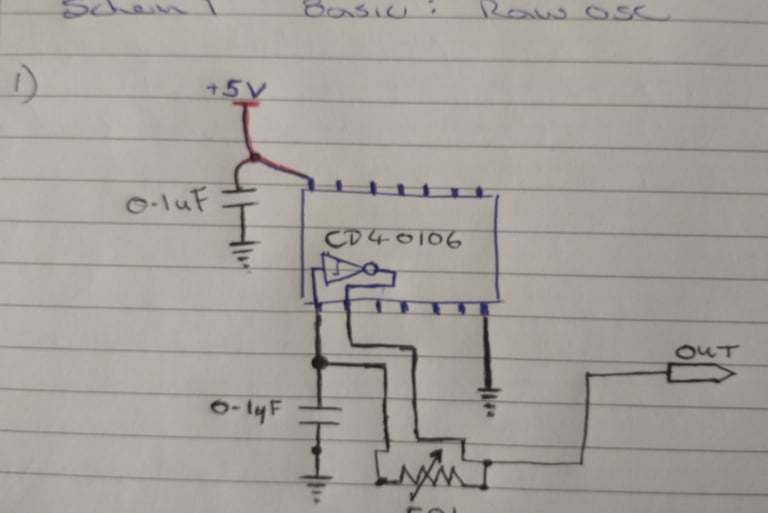 Schem 1 Basic: Raw osc
1)
+5V
0.1uF
CD40106
OUT
0.1uF